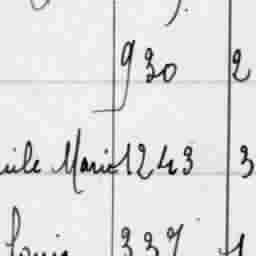 930 2
Marie 1243 3
Louis 337 1